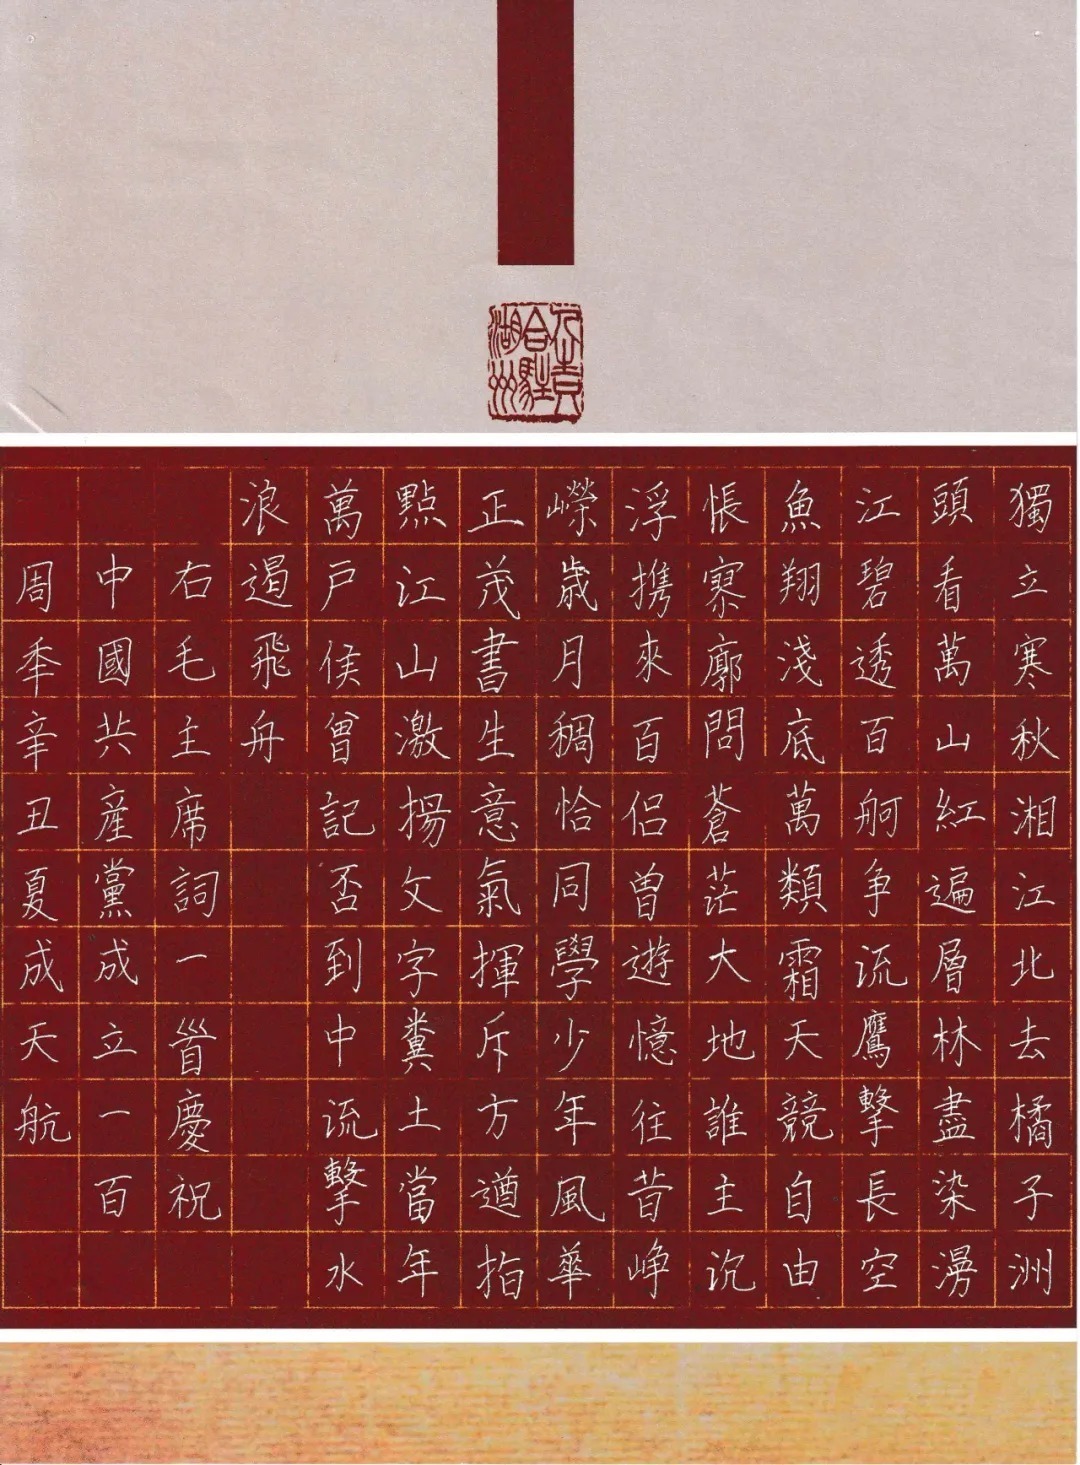 獨立寒秋湘江北去橘子洲
頭看萬山紅遍層林盡染漫
江碧透百舸争流鷹擊長空
魚翔淺底萬類霜天競自由
悵寥廓問蒼茫大地誰主沉
浮携來百侣曾遊憶往昔崢
嶸歲月稠恰同學少年風華
正茂書生意氣揮斥方遒指
點江山激揚文字糞土當年
萬户侯曾記否到中流擊水
浪遏飛舟
右毛主席詞一首慶祝
中國共産黨成立一百
周秊辛丑夏成天航